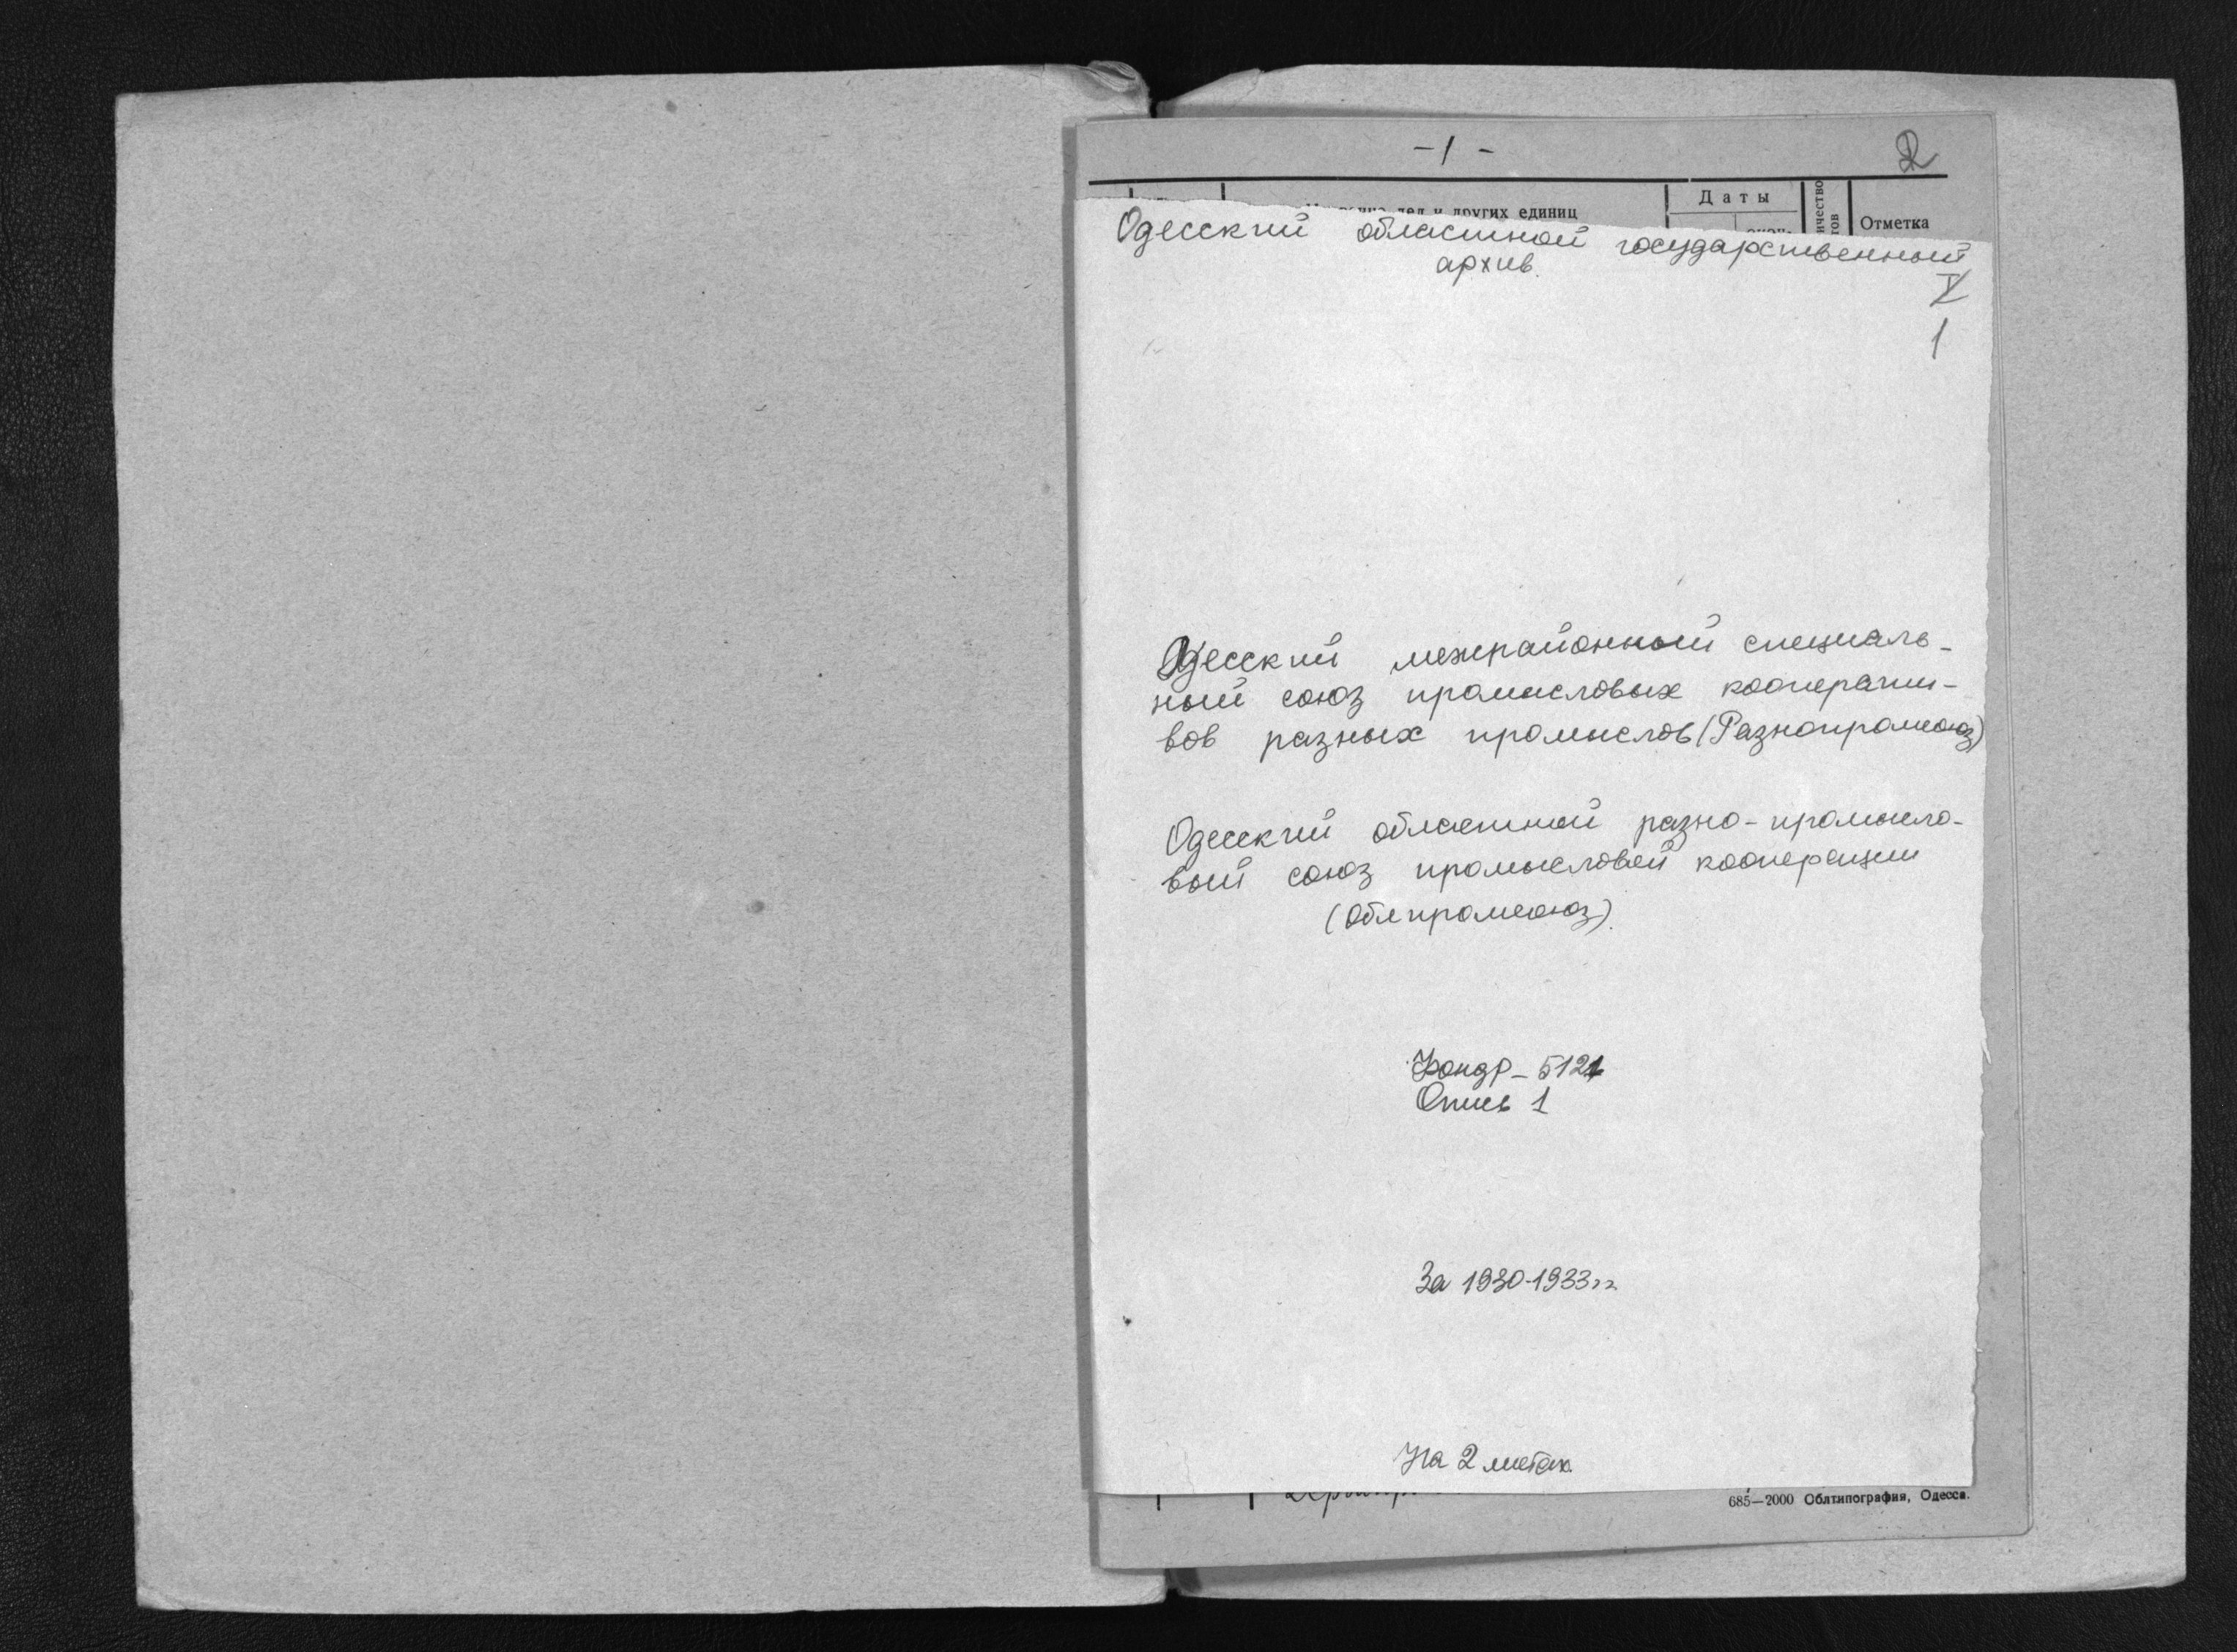 -1-
2
других единиц
Даты
Отметка
Одесский областной государственный
архив.
V
1
Одесский межрайонный специаль-
ный союз промысловых кооперати-
вов разных промыслов (Разнопромсоюз)
Одесский областной разно-промысло-
вый союз промысловой кооперации
(Облпромсоюз).
Фонд Р-5121
Опись 1
За 1930-1933 гг
На 2 листах.
685—2000 Облтипография, Одесса.